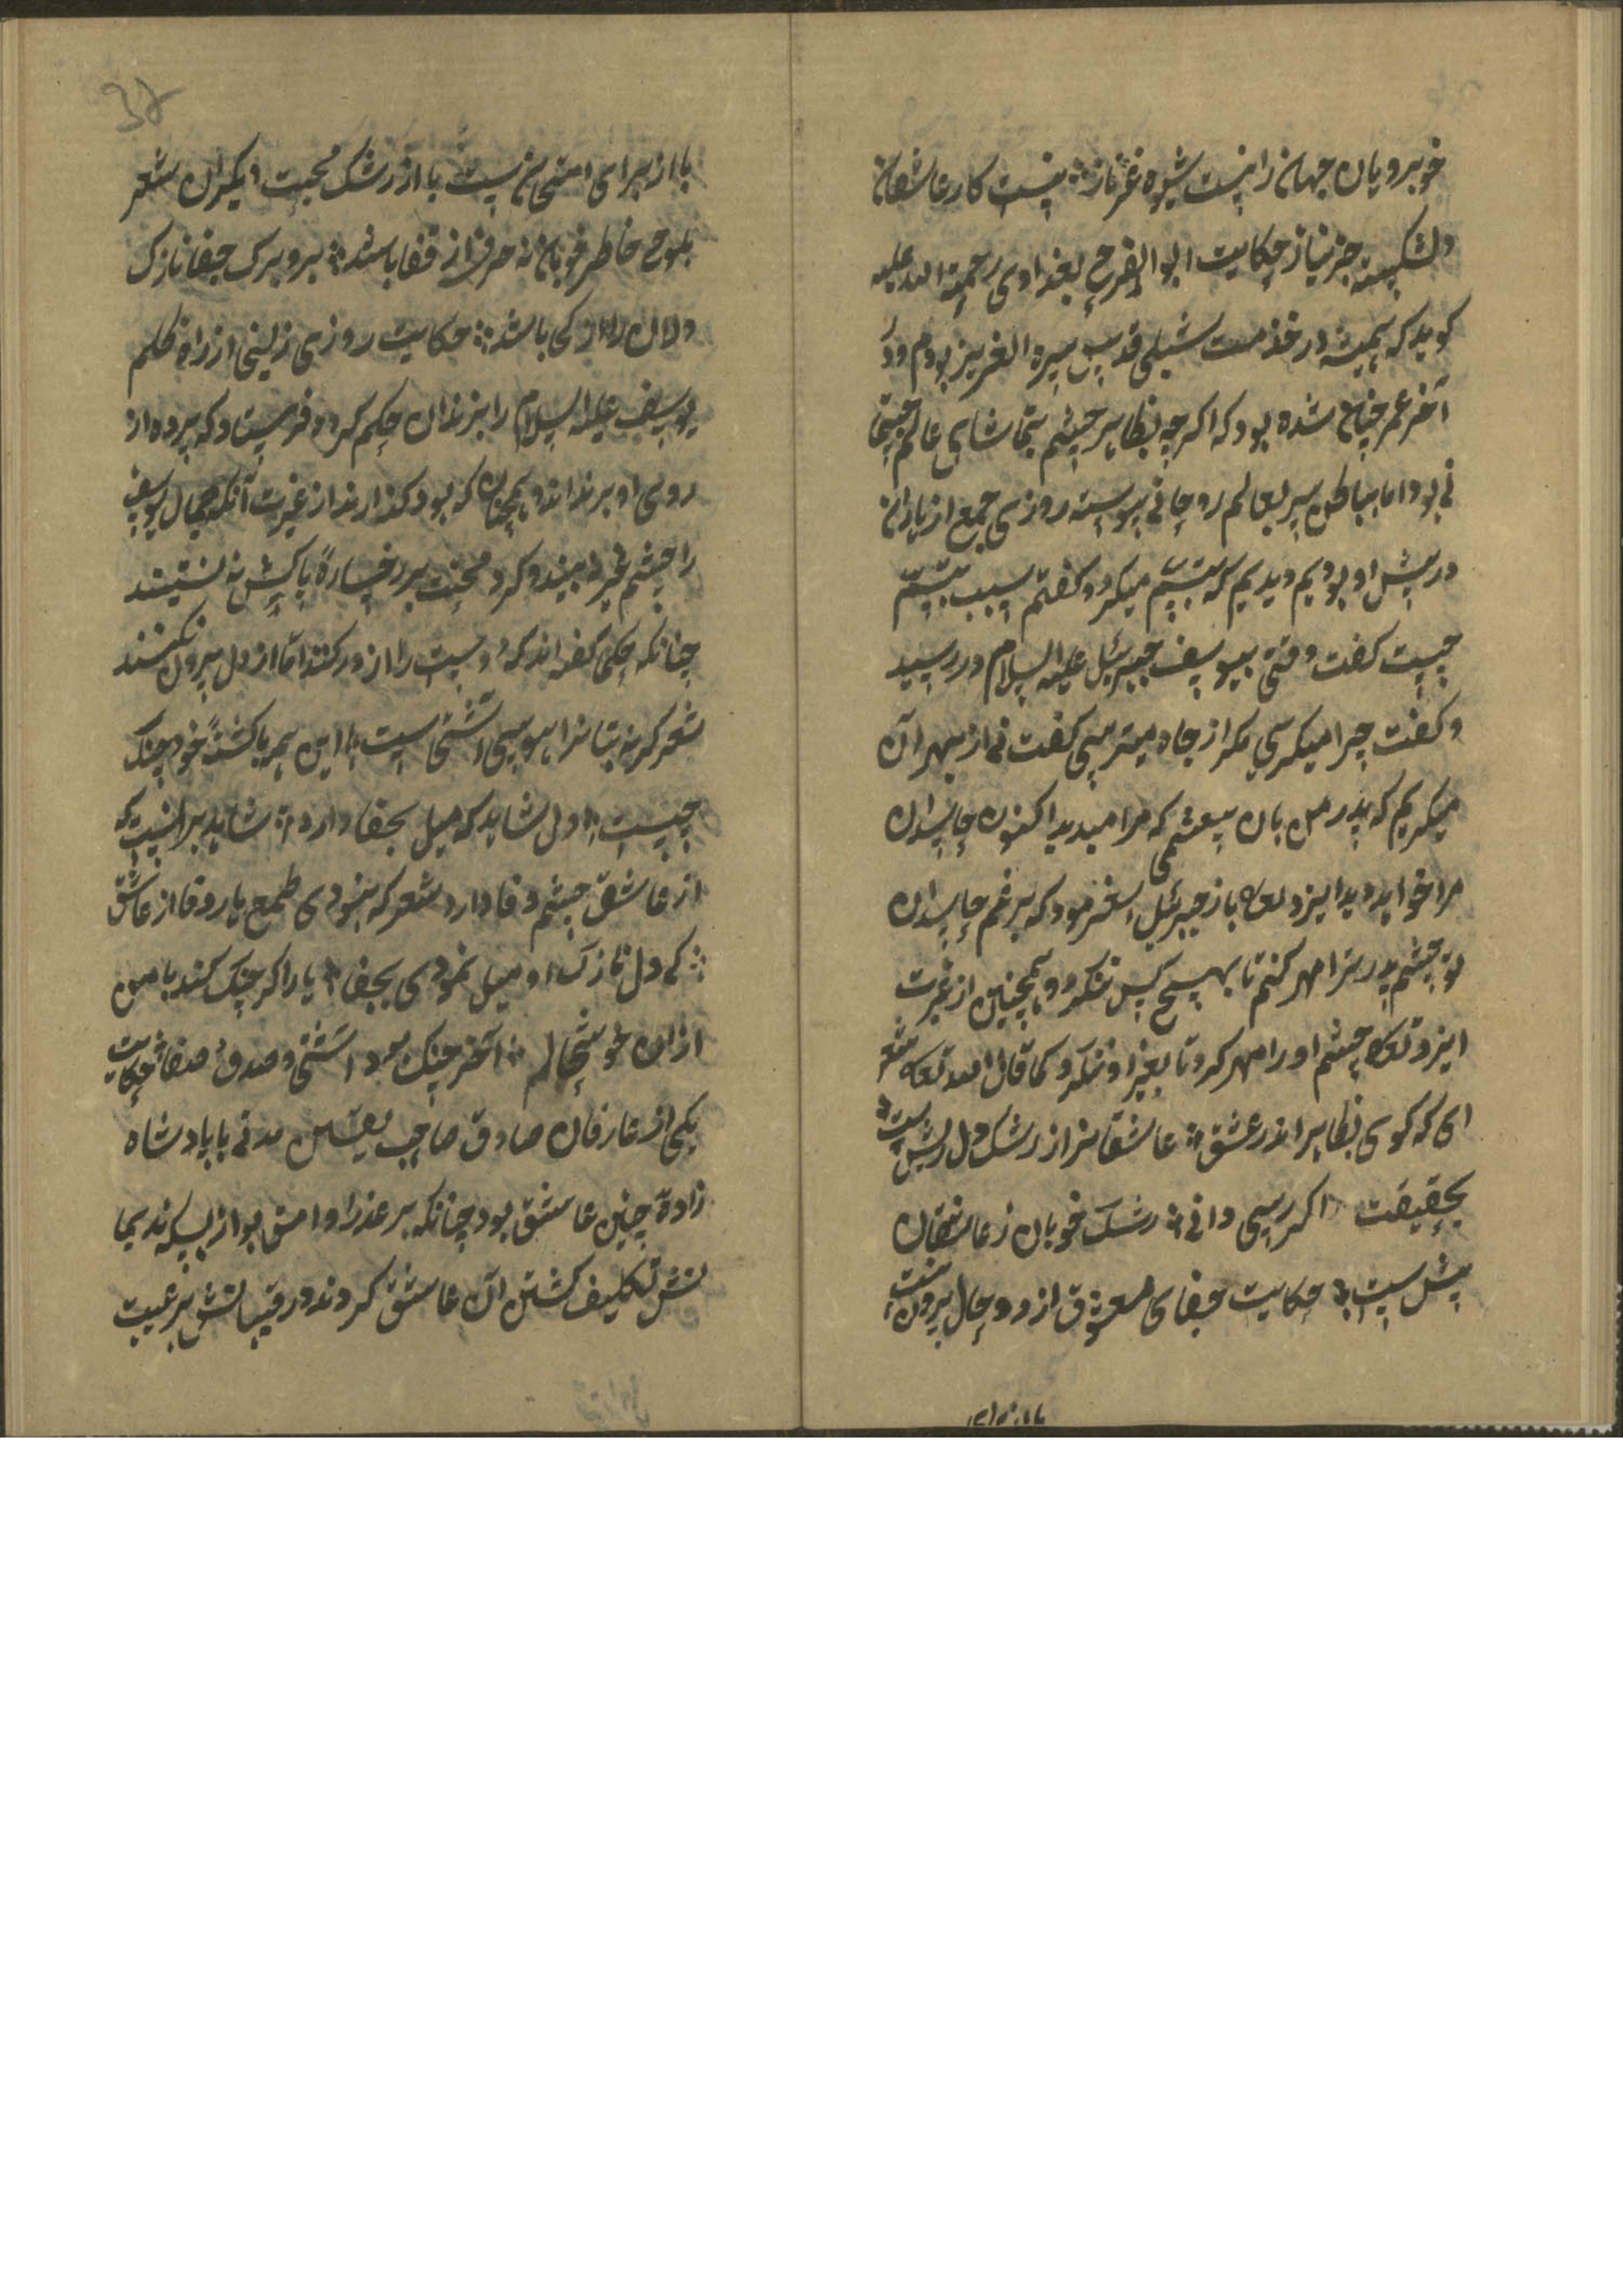 خوبرویان جهانرا نیست شیوه غیر ناز ؞ نیست کار عاشقان
دلشکسته جز نیاز حکایت ابو الفرح بغدادی رحمة الله علیه
کوید که همیشه در خدمت شبلی قدس سره العزیز بودم و در
آخر عمر چنان شده بود که اکرچه بظاهر چشم بتماشای عالم
نی بود اما بباطن سر بعالم روحانی پیوسته روزی جمع از یاران
در پیش او بودیم دیدیم که تبسم میکرد و کفتم سبب تبسم
چیست کفت وقتی بیوسف جبرئیل علیه السلام در رسید
و کفت چرا میکریی مکر از چاه میترسی کفت نی از بهر آن
میکریم که پدر من بان چشمی که مرا میدید اکنون حاسدان
مرا خواهد دید ایزد تعالی باز جبرئیل بفرمود که برغم حاسدان
تو چشم پدر ترا مهر کنم تا بهیچ کس ننکرد و همچنین از غیرت
ایزد تعالی چشم او را مهر کرد تا بغیر او ننکرد کما قال الله تعالی شعر
ای که کوی بظاهر اندر عشق ؞ عاشقانرا ز رشک دل ریش است
بحقیقت اکر رسی دانی ؞ رشک خوبان ز عاشقان
پیش است ؞ حکایت جفای معشوق از دو حال بیرون نیست
یا از برای
یا از برای امتحانست یا از رشک محبت دیکران شعر
بلوح خاطر خوبان نه حرفی از قفا باشد ؞ برو برک جفا نازک
دلان را از کی باشد ؞ حکایت روزی زلیخا از راه ظلم
یوسف علیه السلام را بزندان حکم کرد و فرستاد که پرده از
روی او برندارند و همچنان که بود کذارند از غیرت آنکه جمال یوسف
را چشم غیر نه بیند و کرد محنت بر رخساره پاکش نه نشیند
چنانکه حکما کفته اند که دوست را از در کنند اما از دل بیرون نکنند
شعر کر نه بتانرا هوسی آشتی است ؞ این همه با کشته خود جنک
چیست ؞ دل شاید که میل بجفا دارد ؞ شاید برانست که
از عاشق چشم وفا دارد شعر که نبودی طمع یار وفا از عاشق
؞ کی دل نازک او میل نمودی بجفا ؞ یار اکر جنک کند با من
ازان خوشحالم ؞ آخر جنک بود آشتی و صدق و صفا حکایت
یکی از عارفان صادق صاحب یقین مدتی با پادشاه
زاده چنین عاشق بود چنانکه بر عذرا وامق بود از بسکه ندیما
نش تکلیف کشتن آن عاشق کردند و رقیبانش بر غیبت